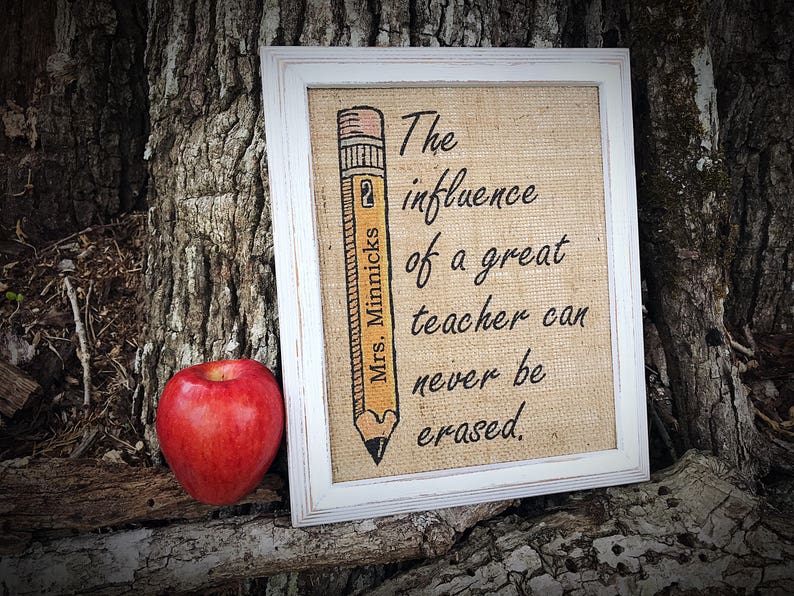 2
Mrs. Minnicks
The
influence
of a great
teacher can
never be
erased.